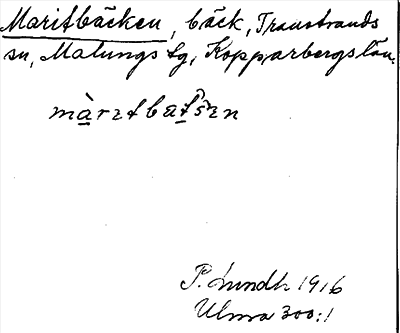 Maritbäcken, bäck, Transtrands
sn, Malungs tg, Kopparbergs län.
P. Lundh 1916
Ulma 300:1